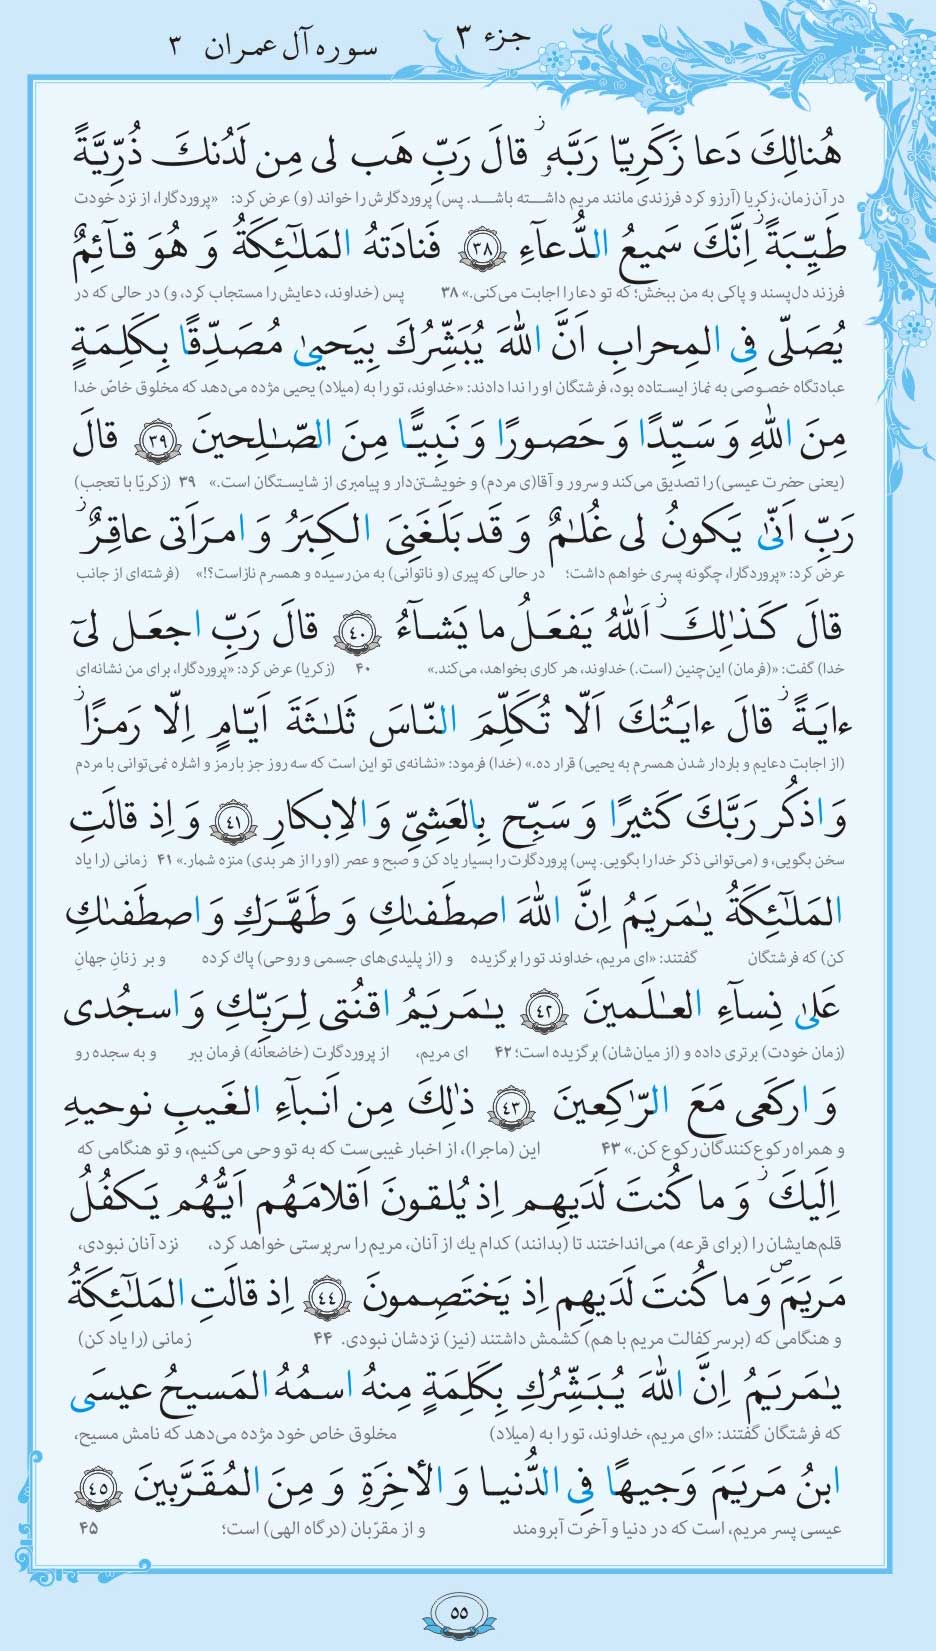 جزء ۳
سوره آل عمران ۳
هُنالِكَ دَعا زَكَرِيّا رَبَّهٗ ۖ قالَ رَبِّ هَب لى مِن لَدُنكَ ذُرِّيَّةً
در آن زمان، زکریا (آرزو کرد فرزندی مانند مریم داشته باشد. پس) پروردگارش را خواند (و) عرض کرد: «پروردگارا، از نزد خودت
طَيِّبَةً ۖ اِنَّكَ سَميعُ الدُّعآءِ ﴿۳۸﴾ فَنادَتهُ المَلٰٓئِكَةُ وَ هُوَ قآئِمٌ
فرزند دل‌پسند و پاکی به من ببخش؛ که تو دعا را اجابت می‌کنی.» ۳۸ پس (خداوند، دعایش را مستجاب کرد، و) در حالی که در
يُصَلّى فِى المِحرابِ اَنَّ اللهَ يُبَشِّرُكَ بِيَحيىٰ مُصَدِّقًا بِكَلِمَةٍ
عبادتگاه خصوصی به نماز ایستاده بود، فرشتگان او را ندا دادند: «خداوند، تو را به (میلاد) یحیی مژده می‌دهد که مخلوق خاصّ خدا
مِنَ اللهِ وَ سَيِّدًا وَ حَصورًا وَ نَبِيًّا مِنَ الصّٰلِحينَ ﴿۳۹﴾ قالَ
(یعنی حضرت عیسی) را تصدیق می‌کند و سرور و آقا(ی مردم) و خویشتن‌دار و پیامبری از شایستگان است.» ۳۹ (زکریّا با تعجب)
رَبِّ اَنّىٰ يَكونُ لى غُلٰمٌ وَ قَد بَلَغَنِىَ الكِبَرُ وَ امرَاَتى عاقِرٌ ۖ
عرض کرد: «پروردگارا، چگونه پسری خواهم داشت؛ در حالی که پیری (و ناتوانی) به من رسیده و همسرم نازاست؟!» (فرشته‌ای از جانب
قالَ كَذٰلِكَ ۖ اَللهُ يَفعَلُ ما يَشآءُ ﴿۴۰﴾ قالَ رَبِّ اجعَل لىٓ
خدا) گفت: «(فرمان) این‌چنین (است.) خداوند، هر کاری بخواهد، می‌کند.» ۴۰ (زکریا) عرض کرد: «پروردگارا، برای من نشانه‌ای
ءايَةً ۖ قالَ ءايَتُكَ اَلّا تُكَلِّمَ النّاسَ ثَلٰثَةَ اَيّامٍ اِلّا رَمزًا ۖ
(از اجابت دعایم و باردار شدن همسرم به یحیی) قرار ده.» (خدا) فرمود: «نشانه‌ی تو این است که سه روز جز با رمز و اشاره نمی‌توانی با مردم
وَ اذكُر رَبَّكَ كَثيرًا وَ سَبِّح بِالعَشِىِّ وَ الاِبكارِ ﴿۴۱﴾ وَ اِذ قالَتِ
سخن بگویی، و (می‌توانی ذکر خدا را بگویی. پس) پروردگارت را بسیار یاد کن و صبح و عصر (او را از هر بدی) منزه شمار.» ۴۱ زمانی (را یاد
المَلٰٓئِكَةُ يٰمَريَمُ اِنَّ اللهَ اصطَفىٰكِ وَ طَهَّرَكِ وَ اصطَفىٰكِ
کن) که فرشتگان گفتند: «ای مریم، خداوند تو را برگزیده و (از پلیدی‌های جسمی و روحی) پاك کرده و بر زنانِ جهانِ
عَلىٰ نِسآءِ العٰلَمينَ ﴿۴۲﴾ يٰمَريَمُ اقنُتى لِرَبِّكِ وَ اسجُدى
(زمان خودت) برتری داده و (از میان‌شان) برگزیده است؛ ۴۲ ای مریم، از پروردگارت (خاضعانه) فرمان ببر و به سجده رو
وَ اركَعى مَعَ الرّٰكِعينَ ﴿۴۳﴾ ذٰلِكَ مِن اَنبآءِ الغَيبِ نوحيهِ
و همراه رکوع‌کنندگان رکوع کن.» ۴۳ این (ماجرا)، از اخبار غیبی‌ست که به تو وحی می‌کنیم، و تو هنگامی که
اِلَيكَ ۖ وَ ما كُنتَ لَدَيهِم اِذ يُلقونَ اَقلامَهُم اَيُّهُم يَكفُلُ
قلم‌هایشان را (برای قرعه) می‌انداختند تا (بدانند) کدام یك از آنان، مریم را سرپرستی خواهد کرد، نزد آنان نبودی،
مَريَمَ ۖ وَ ما كُنتَ لَدَيهِم اِذ يَختَصِمونَ ﴿۴۴﴾ اِذ قالَتِ المَلٰٓئِكَةُ
و هنگامی که (بر سر کفالت مریم با هم) کشمش داشتند (نیز) نزدشان نبودی. ۴۴ زمانی (را یاد کن)
يٰمَريَمُ اِنَّ اللهَ يُبَشِّرُكِ بِكَلِمَةٍ مِنهُ اسمُهُ المَسيحُ عيسَى
که فرشتگان گفتند: «ای مریم، خداوند، تو را به (میلاد) مخلوق خاص خود مژده می‌دهد که نامش مسیح،
ابنُ مَريَمَ وَجيهًا فِى الدُّنيا وَ الأخِرَةِ وَ مِنَ المُقَرَّبينَ ﴿۴۵﴾
عیسی پسر مریم، است که در دنیا و آخرت آبرومند و از مقرّبان (درگاه الهی) است؛ ۴۵
۵۵